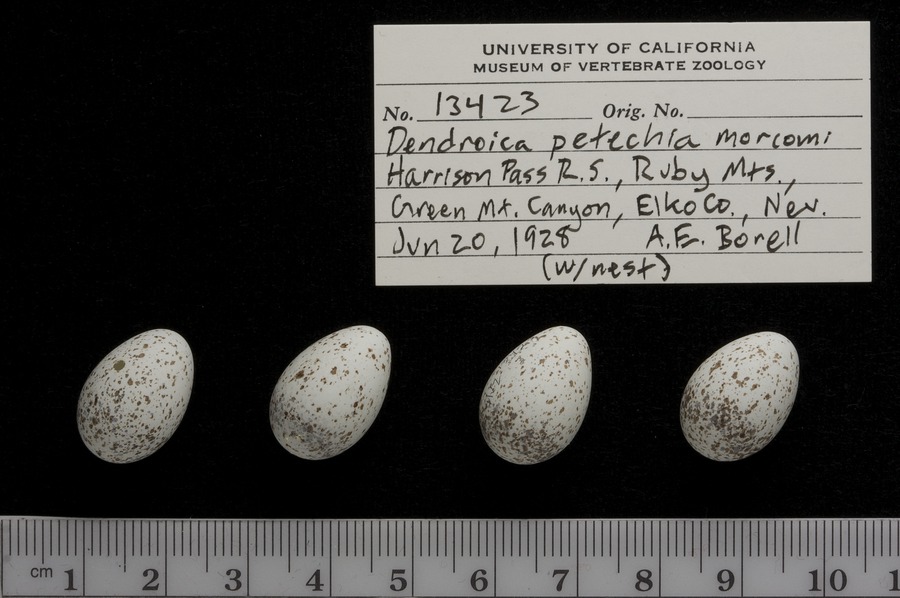 UNIVERSITY OF CALIFORNIA
MUSEUM OF VERTEBRATE ZOOLOGY
No. 13423 Orig. No.
Dendroica petechia morcomi
Harrison Pass R.S., Ruby Mts.,
Green Mt. Canyon, Elko Co., Nev.
Jun 20, 1928 A.E. Borell
(w/nest)
cm 1 2 3 4 5 6 7 8 9 10 1